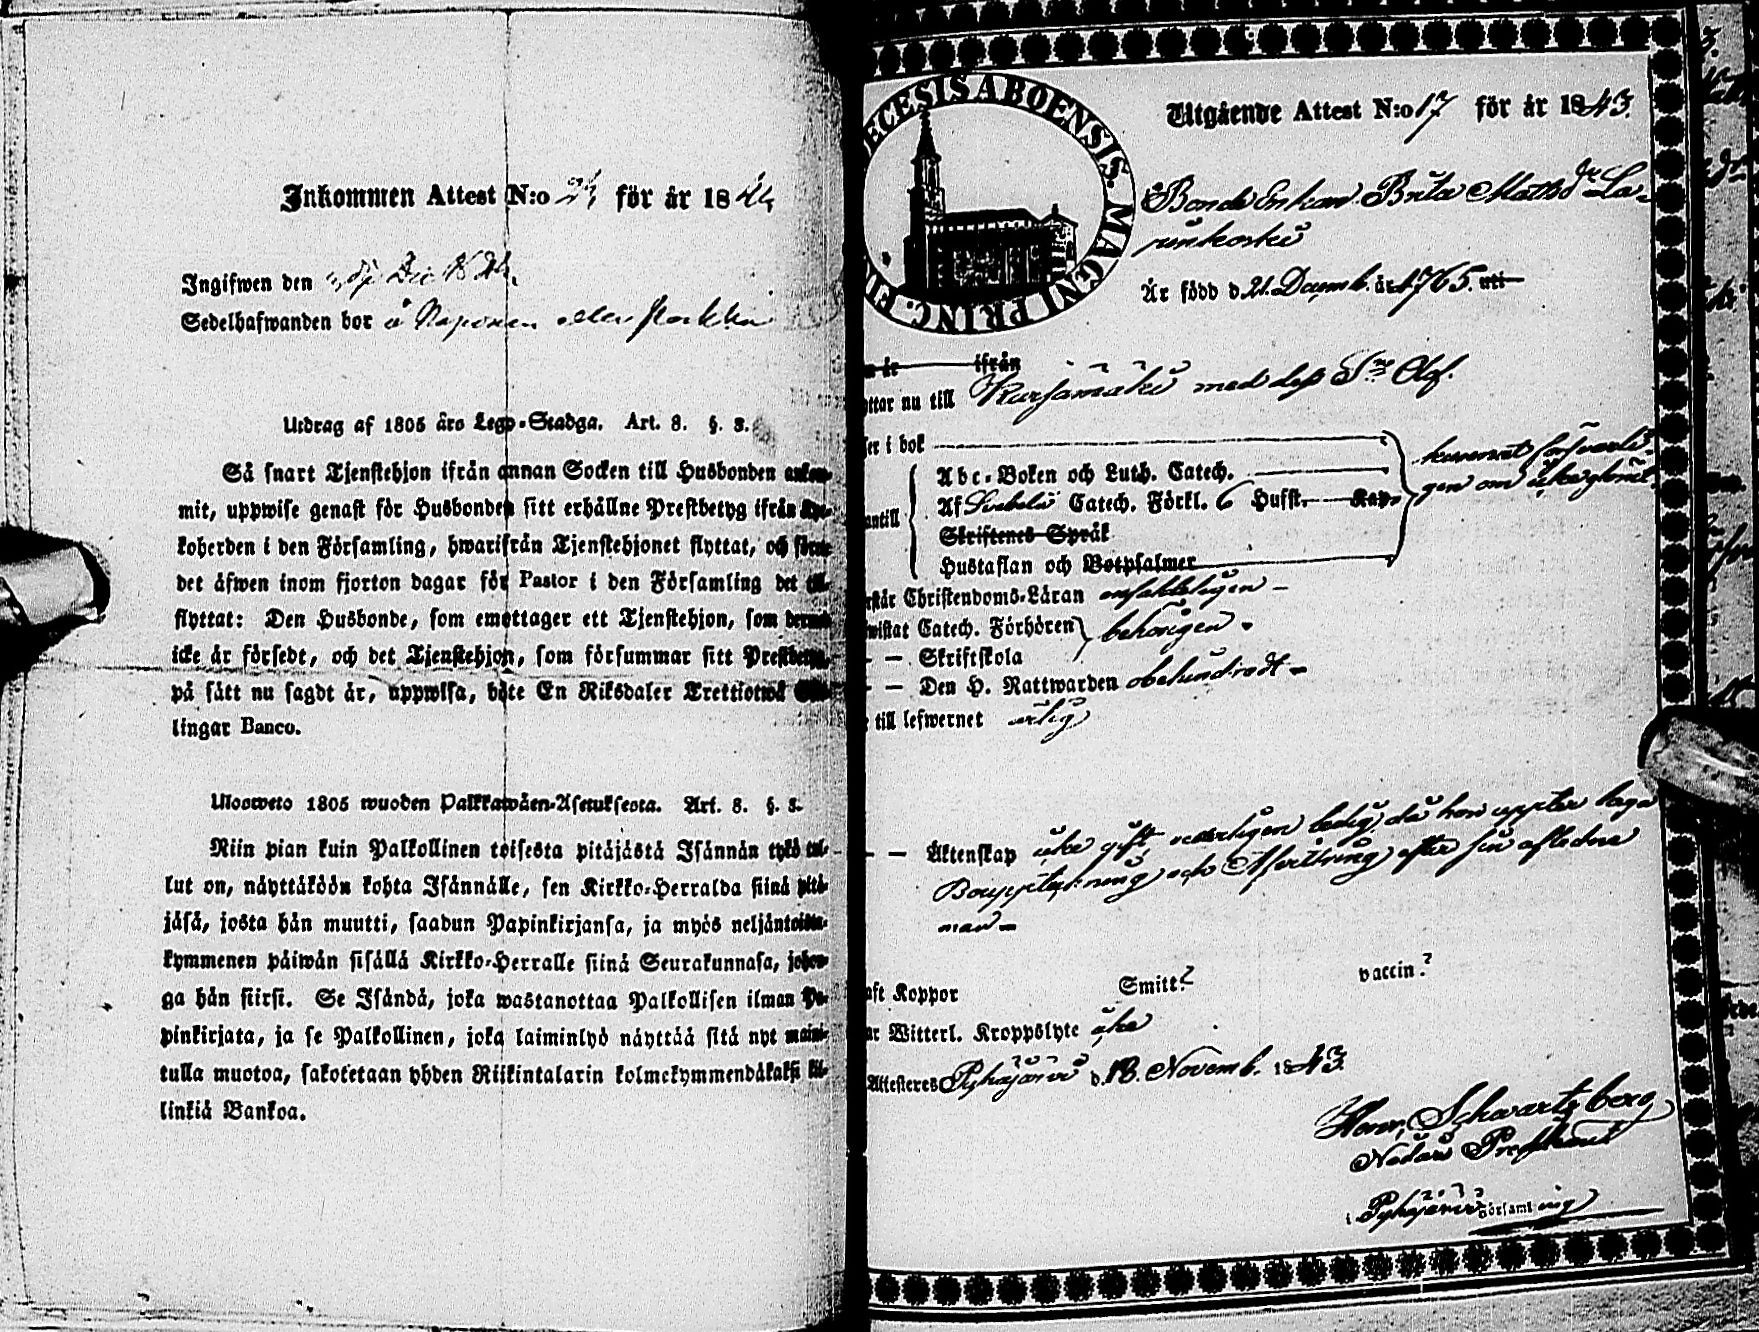 Inkommen Attest N:o 24 för år 1844
Ingifwen den Dec
Sedelhafwanden bor å
Utdrag af 1805 års Lego-Stadga. Art. 8. §. 8.
Så snart Tjenstehjon ifrån annan Socken till Husbonden ankom-
mit, uppwise genast för Husbonden sitt erhållne Prestbetyg ifrån Kyr-
koherden i den Församling, hwarifrån Tjenstehjonet flyttat, och förete
det äfwen inom fjorton dagar för Pastor i den Församling det till-
flyttat: Den Husbonde, som emottager ett Tjenstehjon, som dermed
icke är försedt, och det Tjenstehjon, som försummar sitt Prestbetyg,
på sätt nu sagdt är, uppwisa, böte En Riksdaler Trettiotwå Skil-
lingar Banco.
Ulosweto 1805 wuoden Palkkawäen-Asetuksesta. Art. 8. §. 8.
Niin pian kuin Palkollinen toisesta pitäjästä Isännän tykö tul-
lut on, näyttäköön kohta Isännälle, sen Kirkko-Herralda siinä pitä-
jäsä, josta hän muutti, saadun Papinkirjansa, ja myös neljäntoista-
kymmenen päiwän sisällä Kirkko-Herralle siinä Seurakunnasa, johon-
ga hän siirsi. Se Isändä, joka wastanottaa Palkollisen ilman Pa-
pinkirjata, ja se Palkollinen, joka laiminlyö näyttää sitä nyt maini-
tulla muotoa, sakotetaan yhden Riikintalarin kolmekymmendäkaksi kil-
linkiä Bankoa.
ECESIS ABOENSIS. MAGNI PRINC. FIN
Utgående Attest N:o 17 för år 1843.
Bonde Enkan Brita Mattsdr La-
junkoski
Är född d. 21. Decemb. år 1765. uti
år ifrån
ttar nu till Karjamäki med dess Sn Olof.
ser i bok
Abc-Boken och Luth. Catech.
Af Svebelii Catech. Förkl. 6 Hufst. Kap.
antill
Skriftenes Språk
Hustaflan och Botpsalmer
kunnat försvarli-
gen om icke
rstår Christendoms-Läran enfaldeligen
wistat Catech. Förhören behörigen
— Skriftskola
— Den H. Nattwarden obehindradt
till lefwernet ärlig
— Äktenskap icke gift, warligen ledig, då hon uppter laga
Bouppteckning och Afwittring efter sin afledne
man
aft Koppor Smitt? vaccin?
ar Witterl. Kroppslyte icke
Attesteres Pyhäjärvi d. 18. Novemb. 1843.
Henr. Schwartzberg
Nådårs Predikant
i Pyhäjärvi Församling